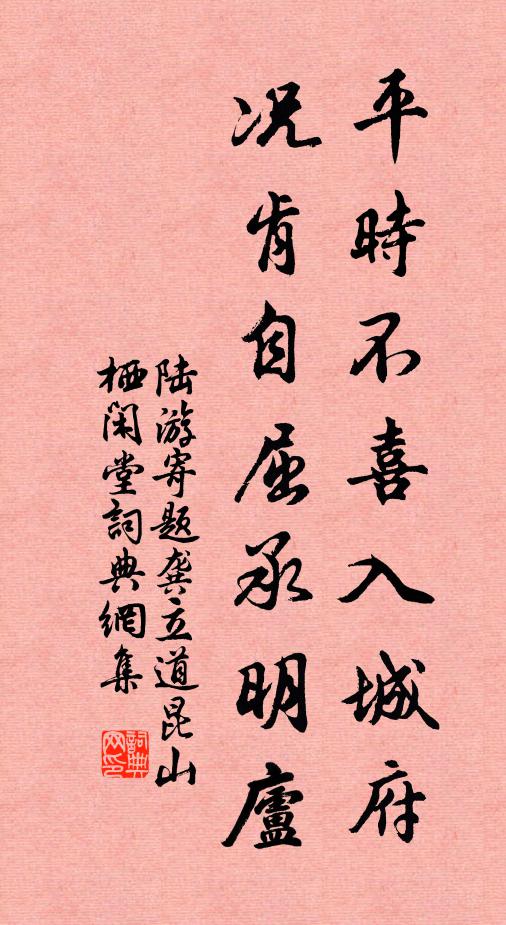 平時不喜入城府
况肯自屈承明廬
陆游寄题龚立道昆山
栖闲堂詞典網集
詞典网印